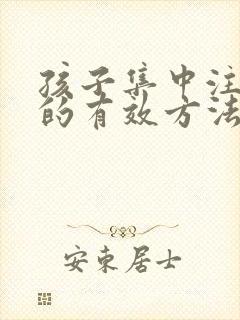 孩子集中注
的有效方法
安东居士